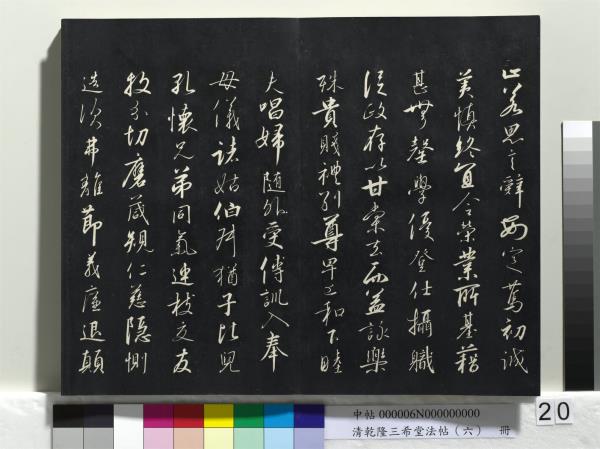 止若思言辭安定篤初誠
美慎終宜令榮業所基藉
甚無罄學優登仕攝職
從政存以甘棠去而益詠樂
殊貴賤禮別尊卑上和下睦
夫唱婦隨外受傅訓入奉
母儀諸姑伯叔猶子比兒
孔懷兄弟同氣連枝交友
投分切磨箴規仁慈隱惻
造次弗離節義廉退顛
中帖 000006N000000000
清乾隆三希堂法帖（六） 冊
20